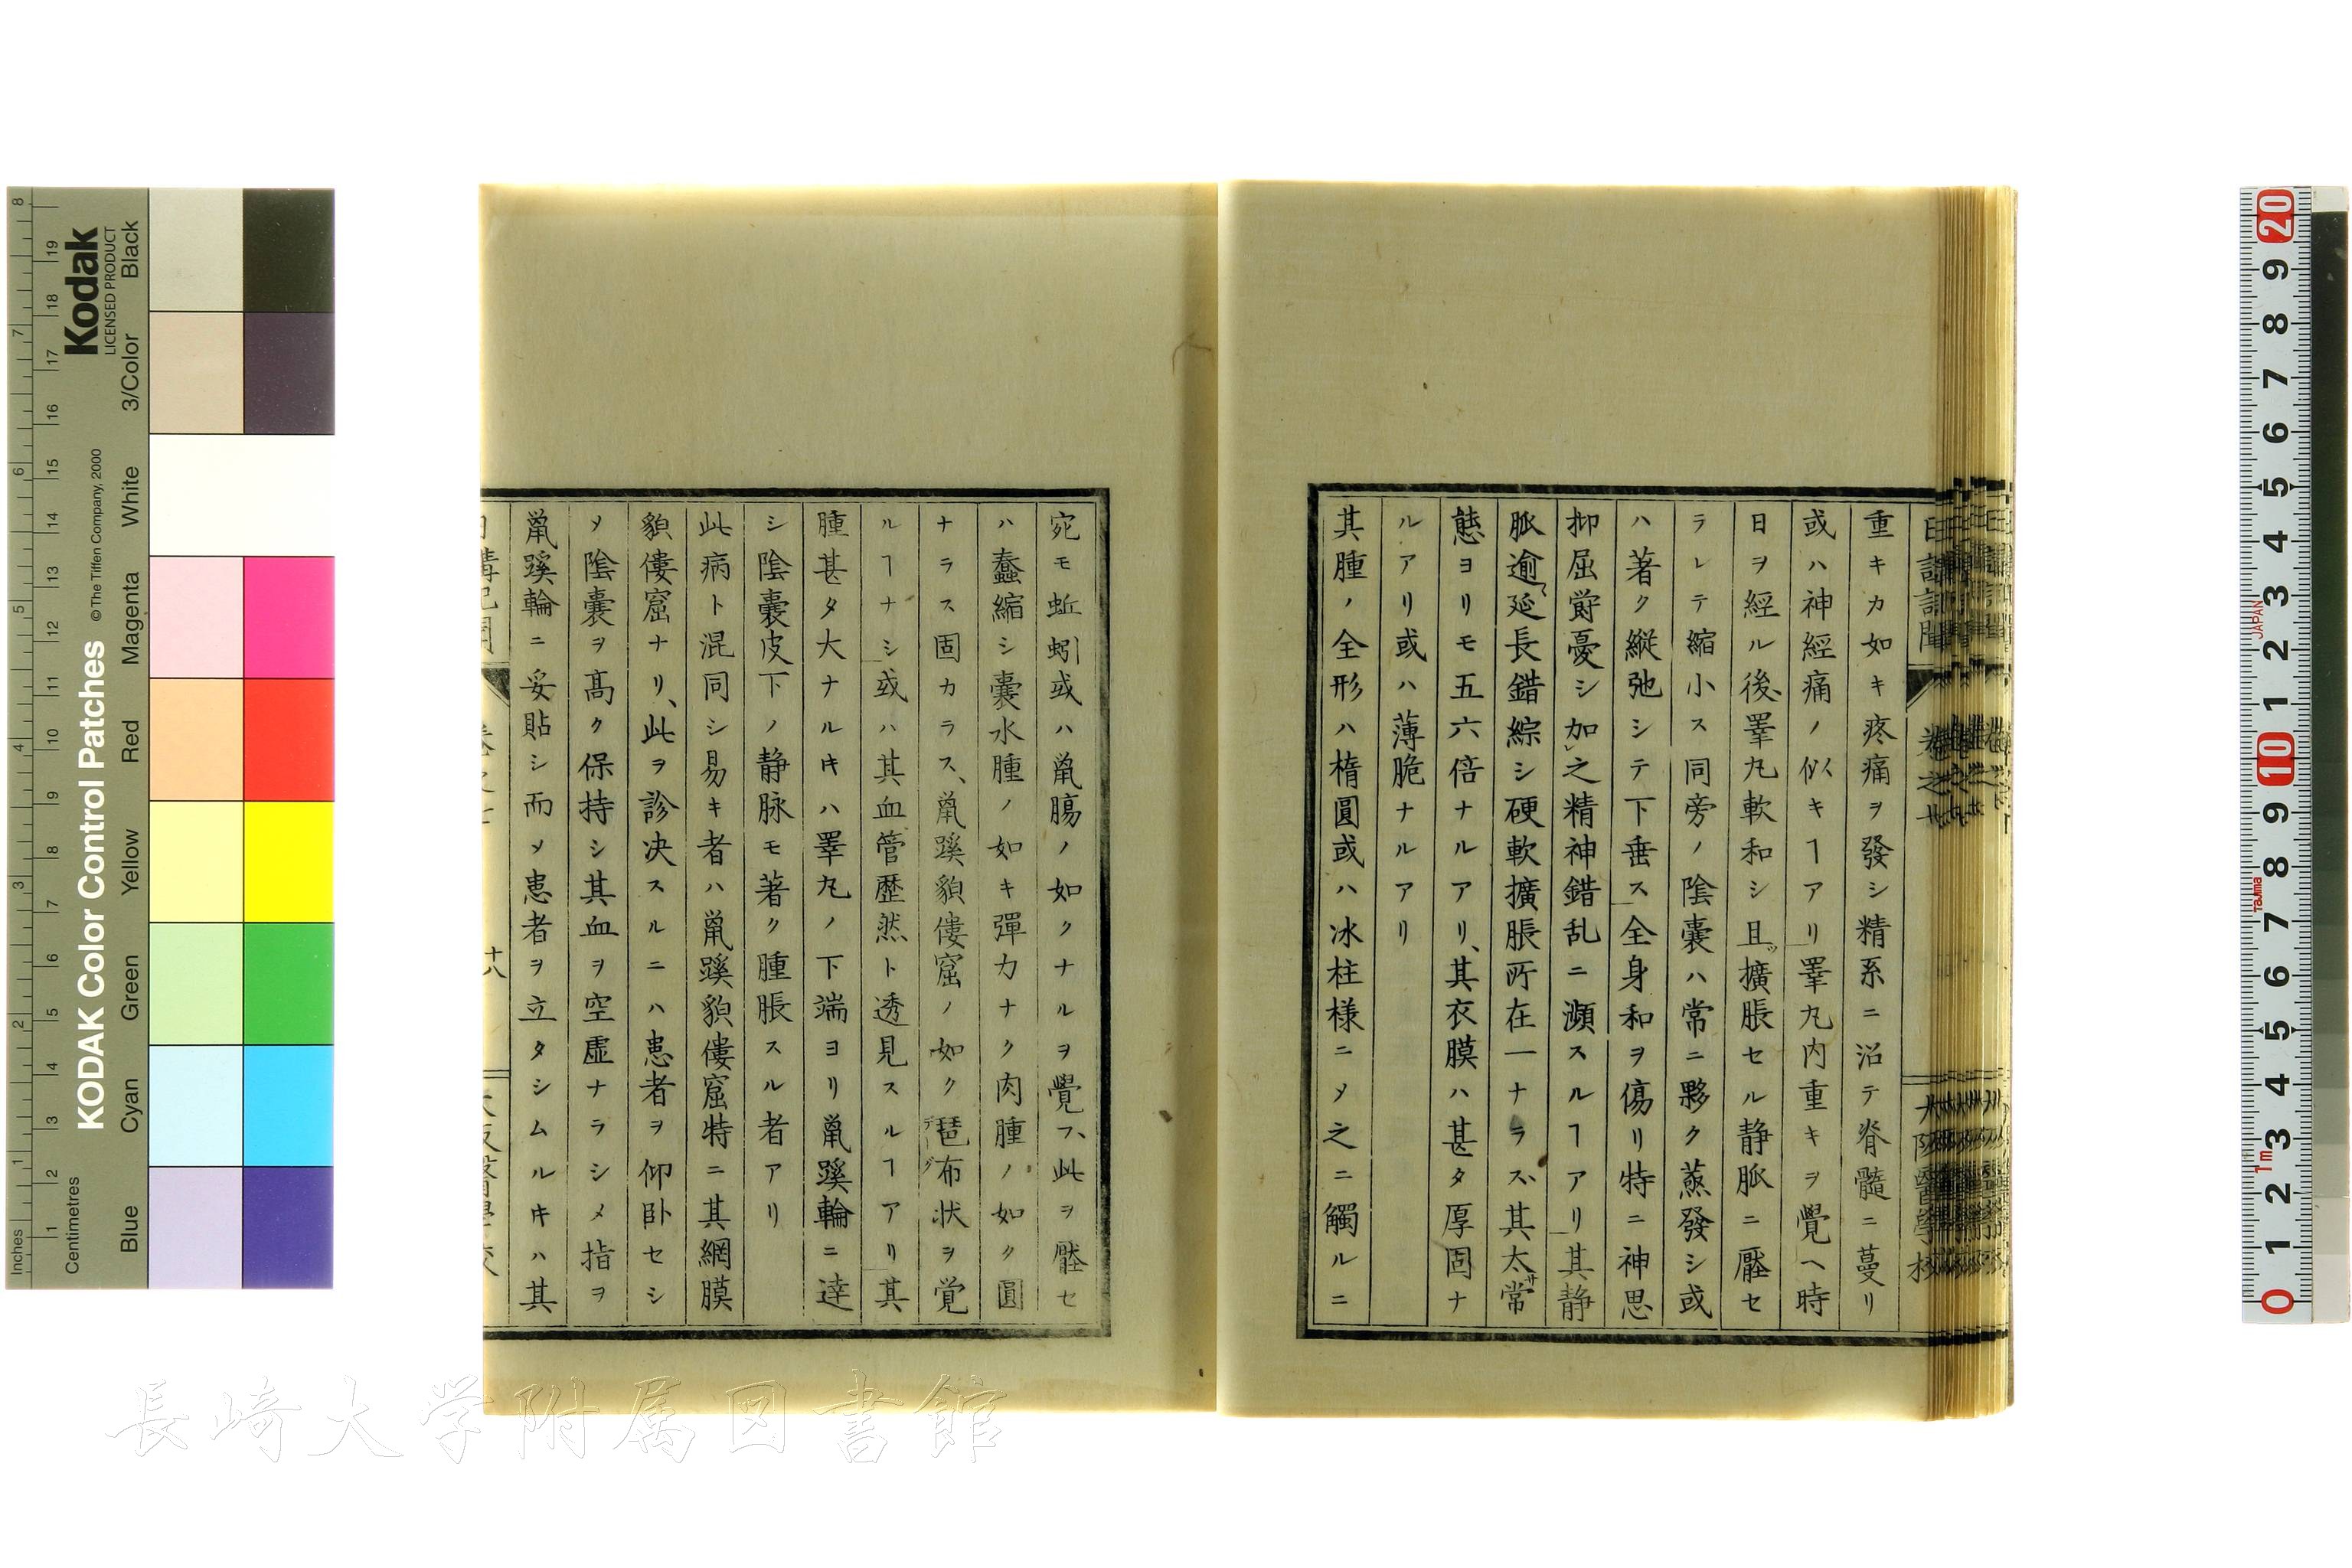 重キカ如キ疼痛ヲ發シ精系ニ沿テ脊髓ニ蔓リ
或ハ神經痛ノ似キヿアリ睪丸内重キヲ覺ヘ時
日ヲ經ル後、睪丸軟和シ且ツ擴脹セル静脈ニ壓セ
ラレテ縮小ス同旁ノ陰嚢ハ常ニ夥ク蒸發シ或
ハ著ク縦弛シテ下垂ス全身和ヲ傷リ特ニ神思
抑屈欝憂シ加之精神錯乱ニ瀕スルヿアリ其静
脈逾〻延長錯綜シ硬軟擴脹所在一ナラス、其太サ常
態ヨリモ五六倍ナルアリ、其衣膜ハ甚タ厚固ナ
ルアリ或ハ薄脆ナルアリ
其腫ノ全形ハ楕圓或ハ冰柱様ニメ之ニ觸ルニ
宛モ蚯蚓或ハ鼠膓ノ如クナルヲ覺フ、此ヲ壓セ
ハ蠢縮シ嚢水腫ノ如キ彈力ナク肉腫ノ如ク圓
ナラス固カラス、鼠蹊貌僂窟ノ如ク琶布状ヲ覚
ルヿナシ或ハ其血管歴然ト透見スルヿアリ其
腫甚タ大ナルキハ睪丸ノ下端ヨリ鼠蹊輪ニ達
シ陰嚢皮下ノ静脉モ著ク腫脹スル者アリ
此病ト混同シ易キ者ハ鼠蹊貌僂窟特ニ其網膜
貌僂窟ナリ、此ヲ診决スルニハ患者ヲ仰卧セシ
メ陰嚢ヲ髙ク保持シ其血ヲ空虚ナラシメ指ヲ
鼠蹊輪ニ妥貼シ而メ患者ヲ立タシムルキハ其
十八
日講記聞
卷之廿
大阪醫學校
長崎大学附属図書館
KODAK Color Control Patches
©The Tiffen Company, 2000
Kodak
LICENSED PRODUCT
Inches
Centimetres
Blue
Cyan
Green
Yellow
Red
Magenta
White
3/Color
Black
JAPAN
Tajima
1m